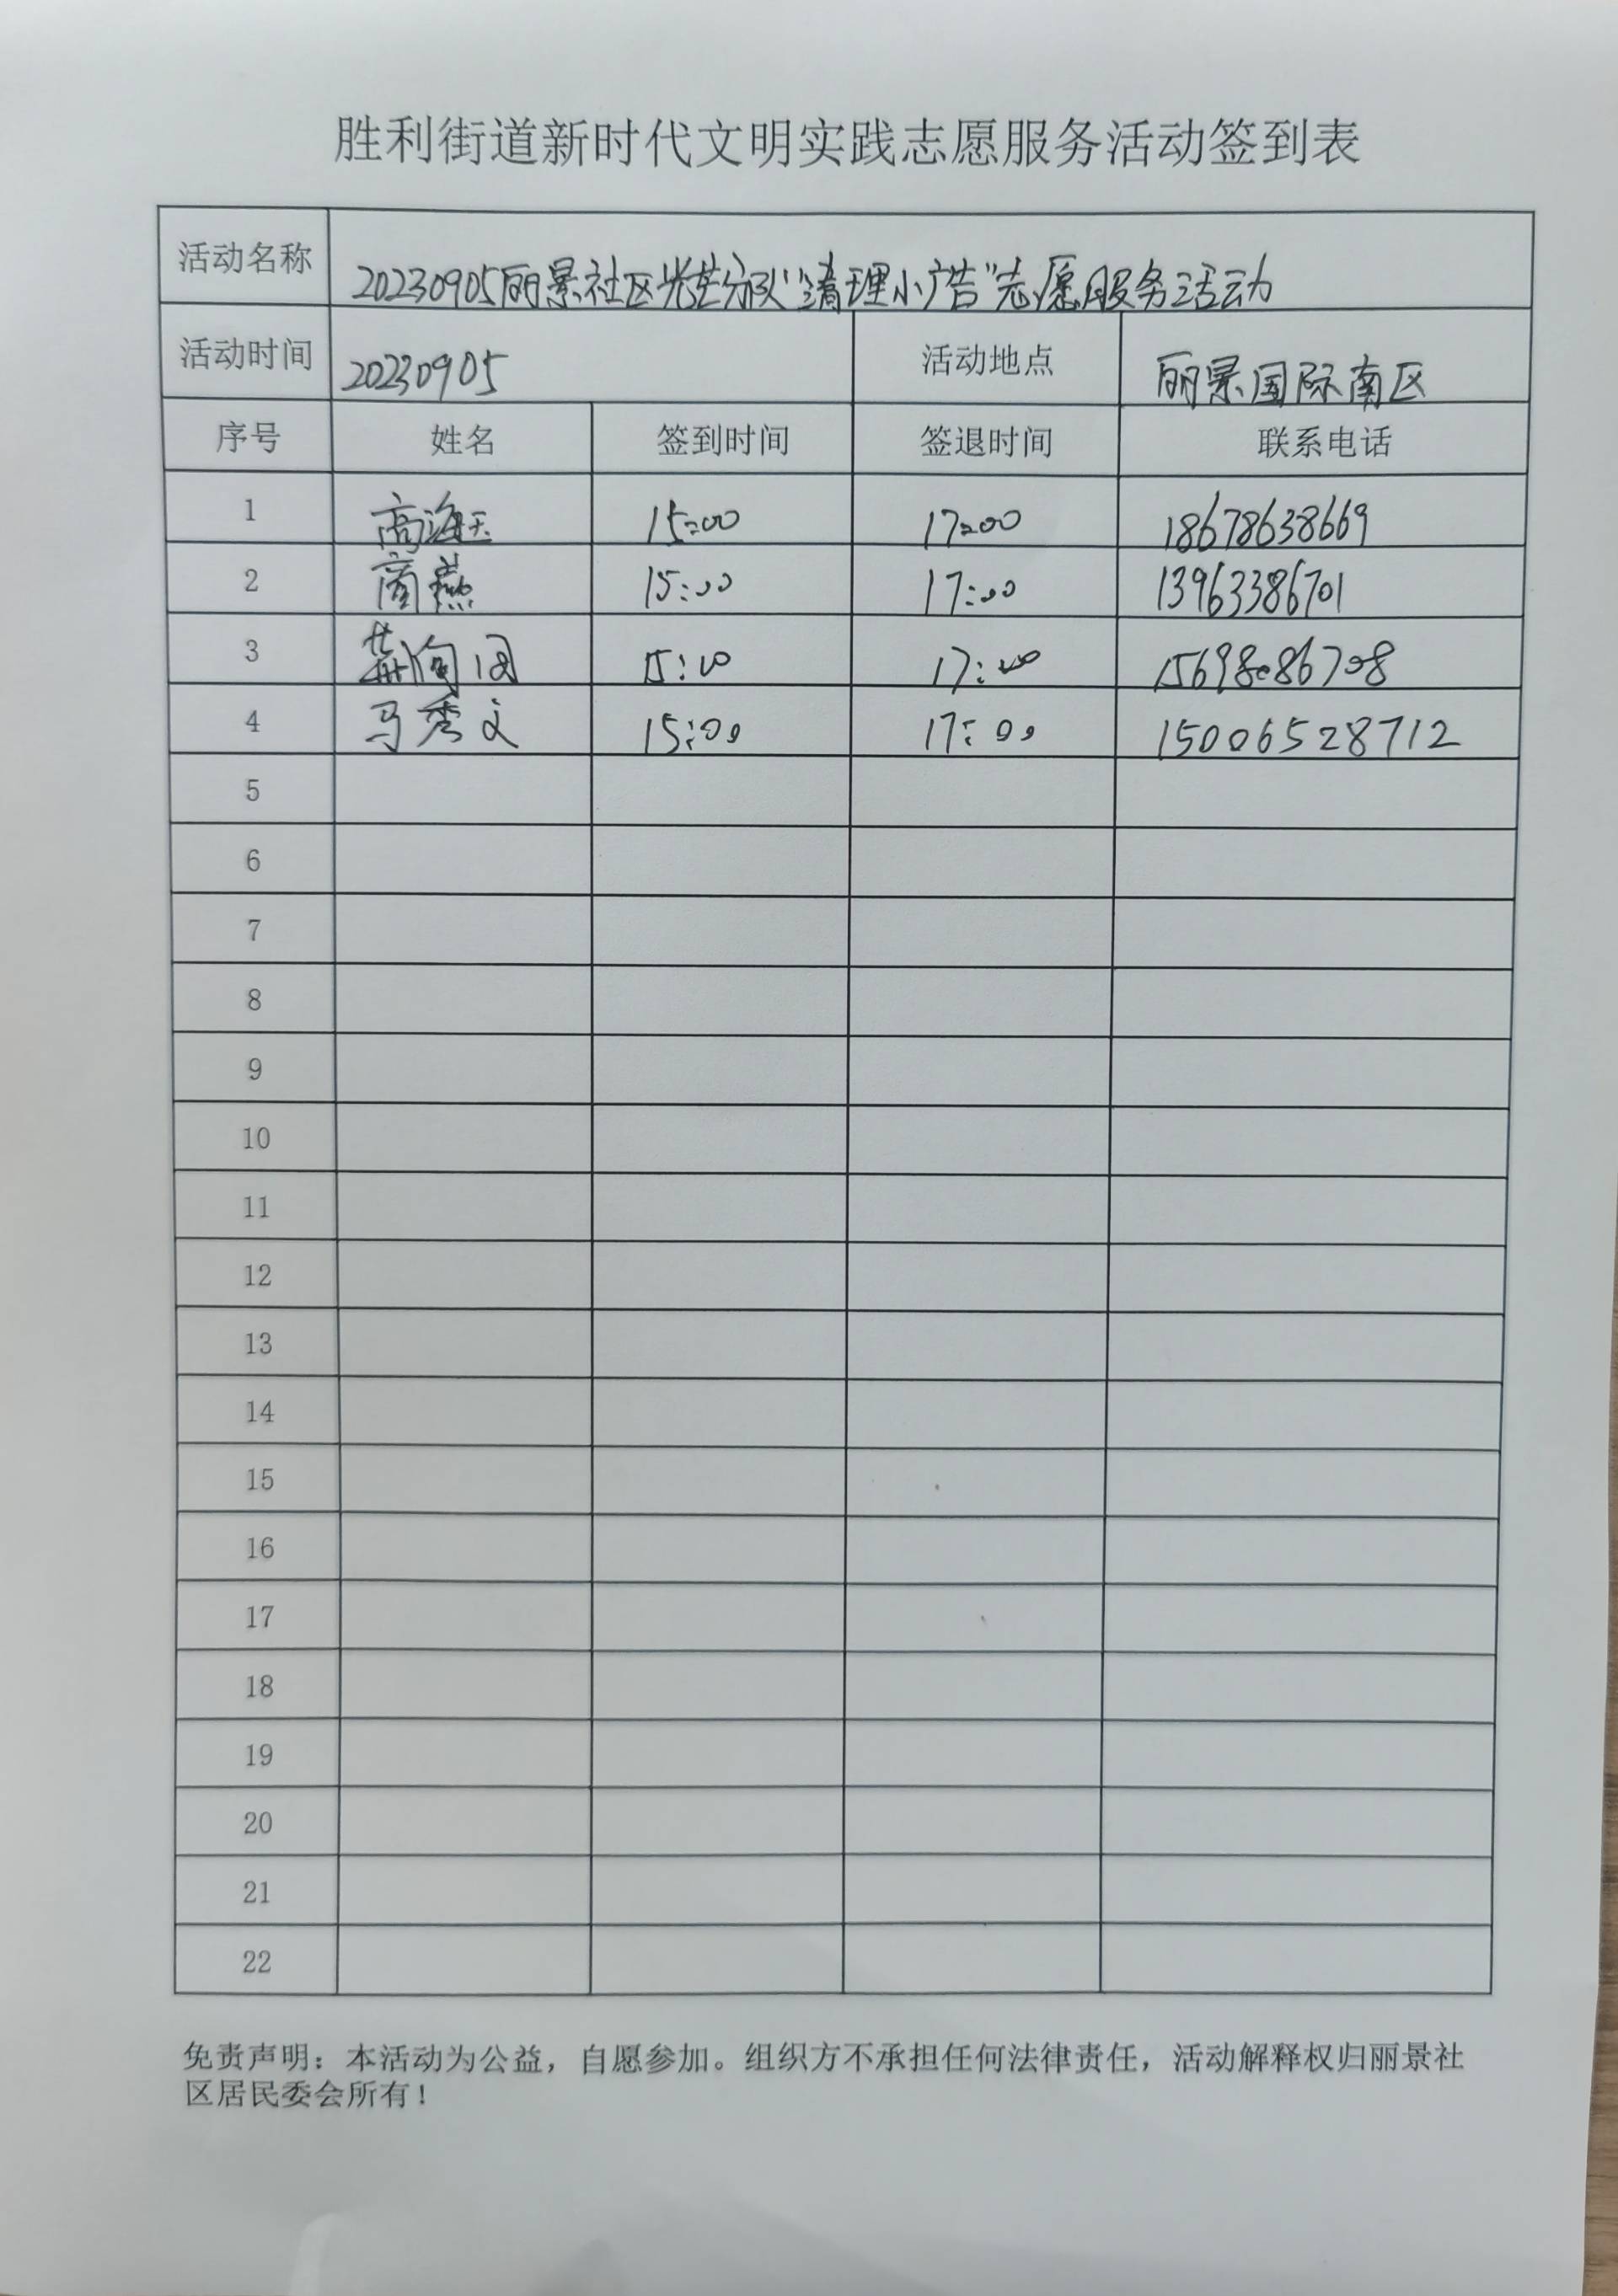 胜利街道新时代文明实践志愿服务活动签到表
活动名称 20230905丽景社区光芒分队“清理小广告”志愿服务活动
活动时间 20230905 活动地点 丽景国际南区
序号 姓名 签到时间 签退时间 联系电话
1 高海 15:00 17:00 18678638669
2 商燕 15:00 17:00 13963386701
3 15:00 17:00 15698086708
4 马秀文 15:00 17:00 15006528712
5
6
7
8
9
10
11
12
13
14
15
16
17
18
19
20
21
22
免责声明：本活动为公益，自愿参加。组织方不承担任何法律责任，活动解释权归丽景社
区居民委会所有！